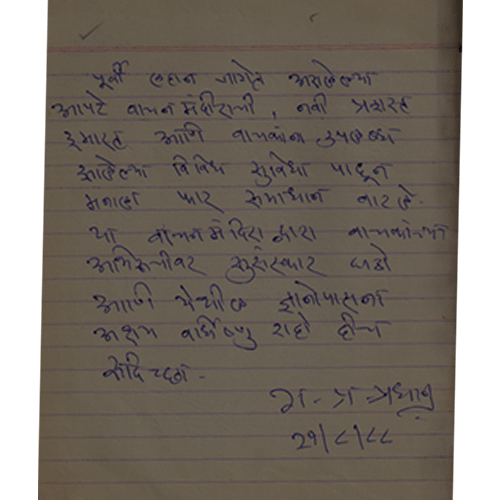 पूर्वी लहान जागेत असलेल्या
आपटे वाचन मंदीराची, नवी प्रशस्त
इमारत आणि वाचकांना उपलब्ध
झालेल्या विविध सुविधा पाहून
मनाला फार समाधान वाटले.
या वाचनमंदिराद्वारा वाचकांच्या
अभिरुचीवर सुसंस्कार घडो
आणि येथील ज्ञानोपासना
अक्षय वर्धिष्णु राहो हीच
सदिच्छा.
ग. प्र. प्रधान
२१/८/८८